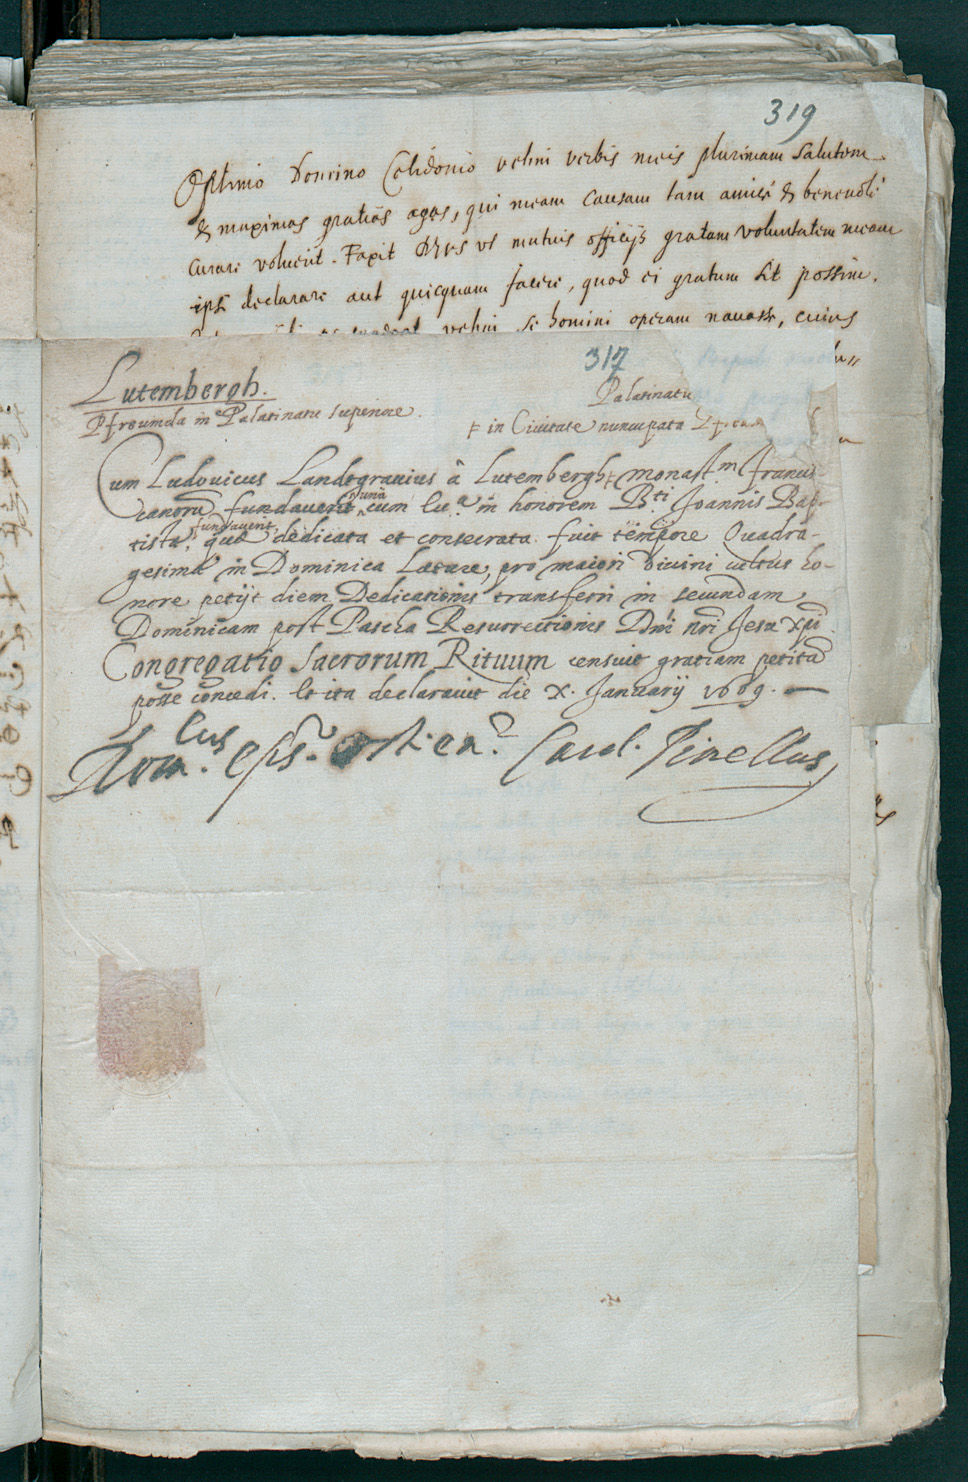 319
Optimo Domino Celidonio velim verbis meis plurimam salutem
& maximas gratias agas, qui meam causam tam amicè & beneuolè
curare voluerit. Faxit Deus vt mutuis officijs gratam voluntatem meam
ipsi declarare aut quicquam facere, quod ei gratum sit possim.
velim se homini operam nauasse, cuius
317
Lutembergh.
Pfreumda in Palatinatu superiore.
Palatinatu
in Ciuitate nuncupata
Cum Ludouicus Landtgrauius à Lutembergh monastm Franci
canorũ fundauerit cum Ecc.a in honorem Bti Joannis Bap
tista, fundauerit quæ dedicata et consecrata fuit tempore Quadra-
gesimæ in Dominica Lætare, pro maiori diuini cultus ho-
nore petijt diem Dedicationis transferri in secundam
Dominicam post Pascha Resurrectionis Dñi nri Jesu Xpi
Congregatio Sacrorum Rituum censuit gratiam petitã
posse concedi. Et ita declarauit die X. Januarij 1609.
Carol. Pinellus